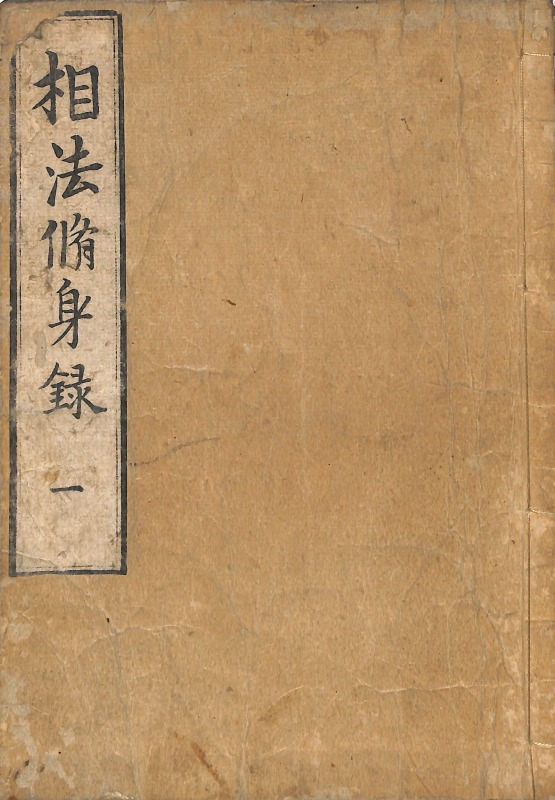 相法脩身録 一